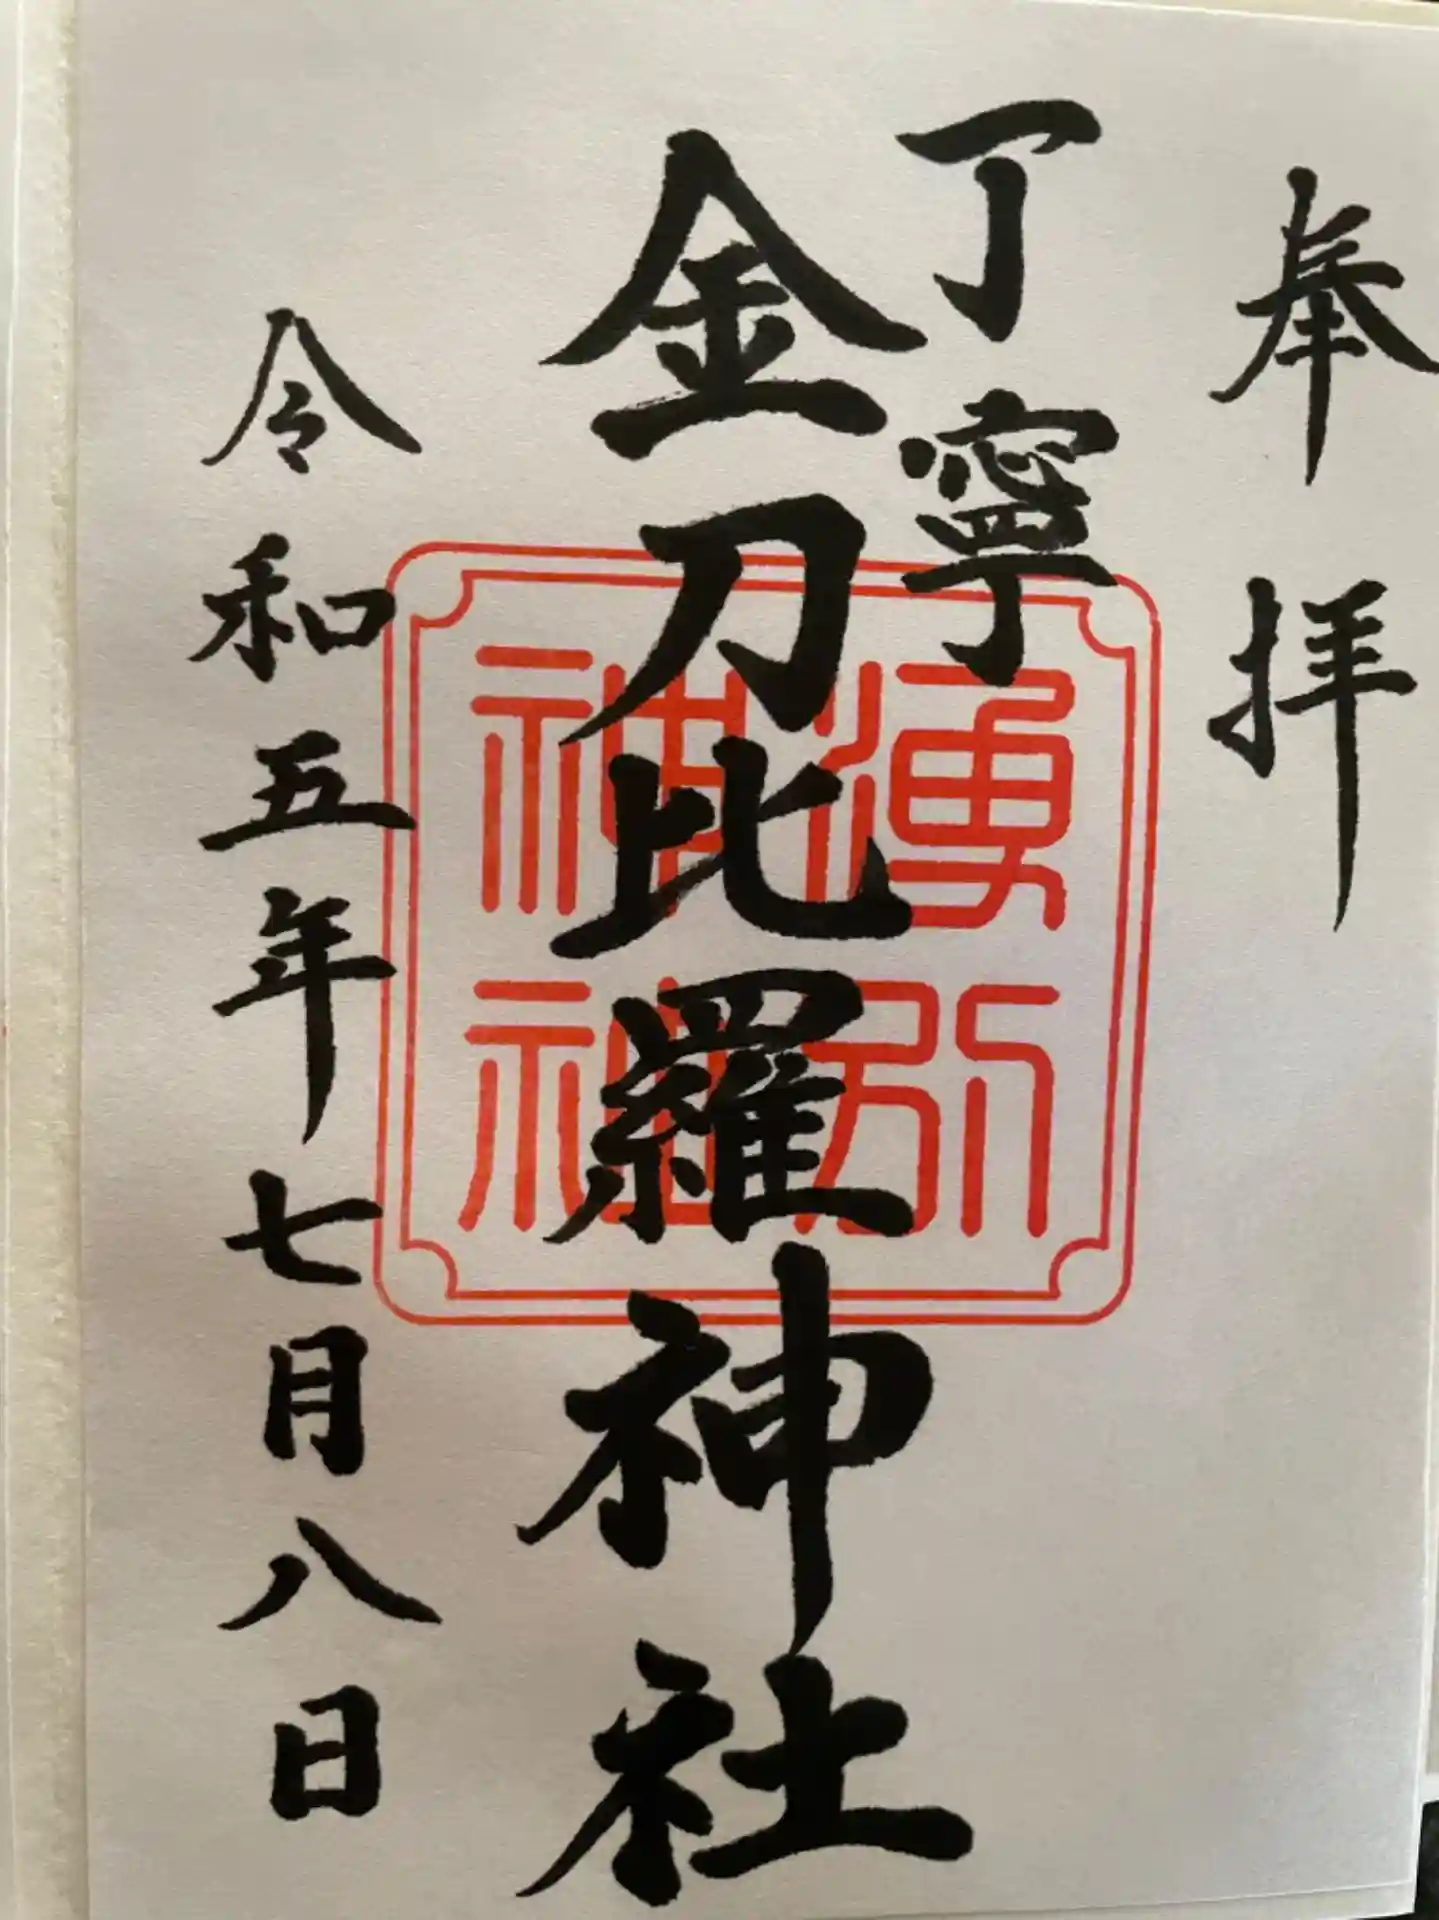 奉拝
丁寧
金刀比羅神社
令和五年七月八日
湧別
神社